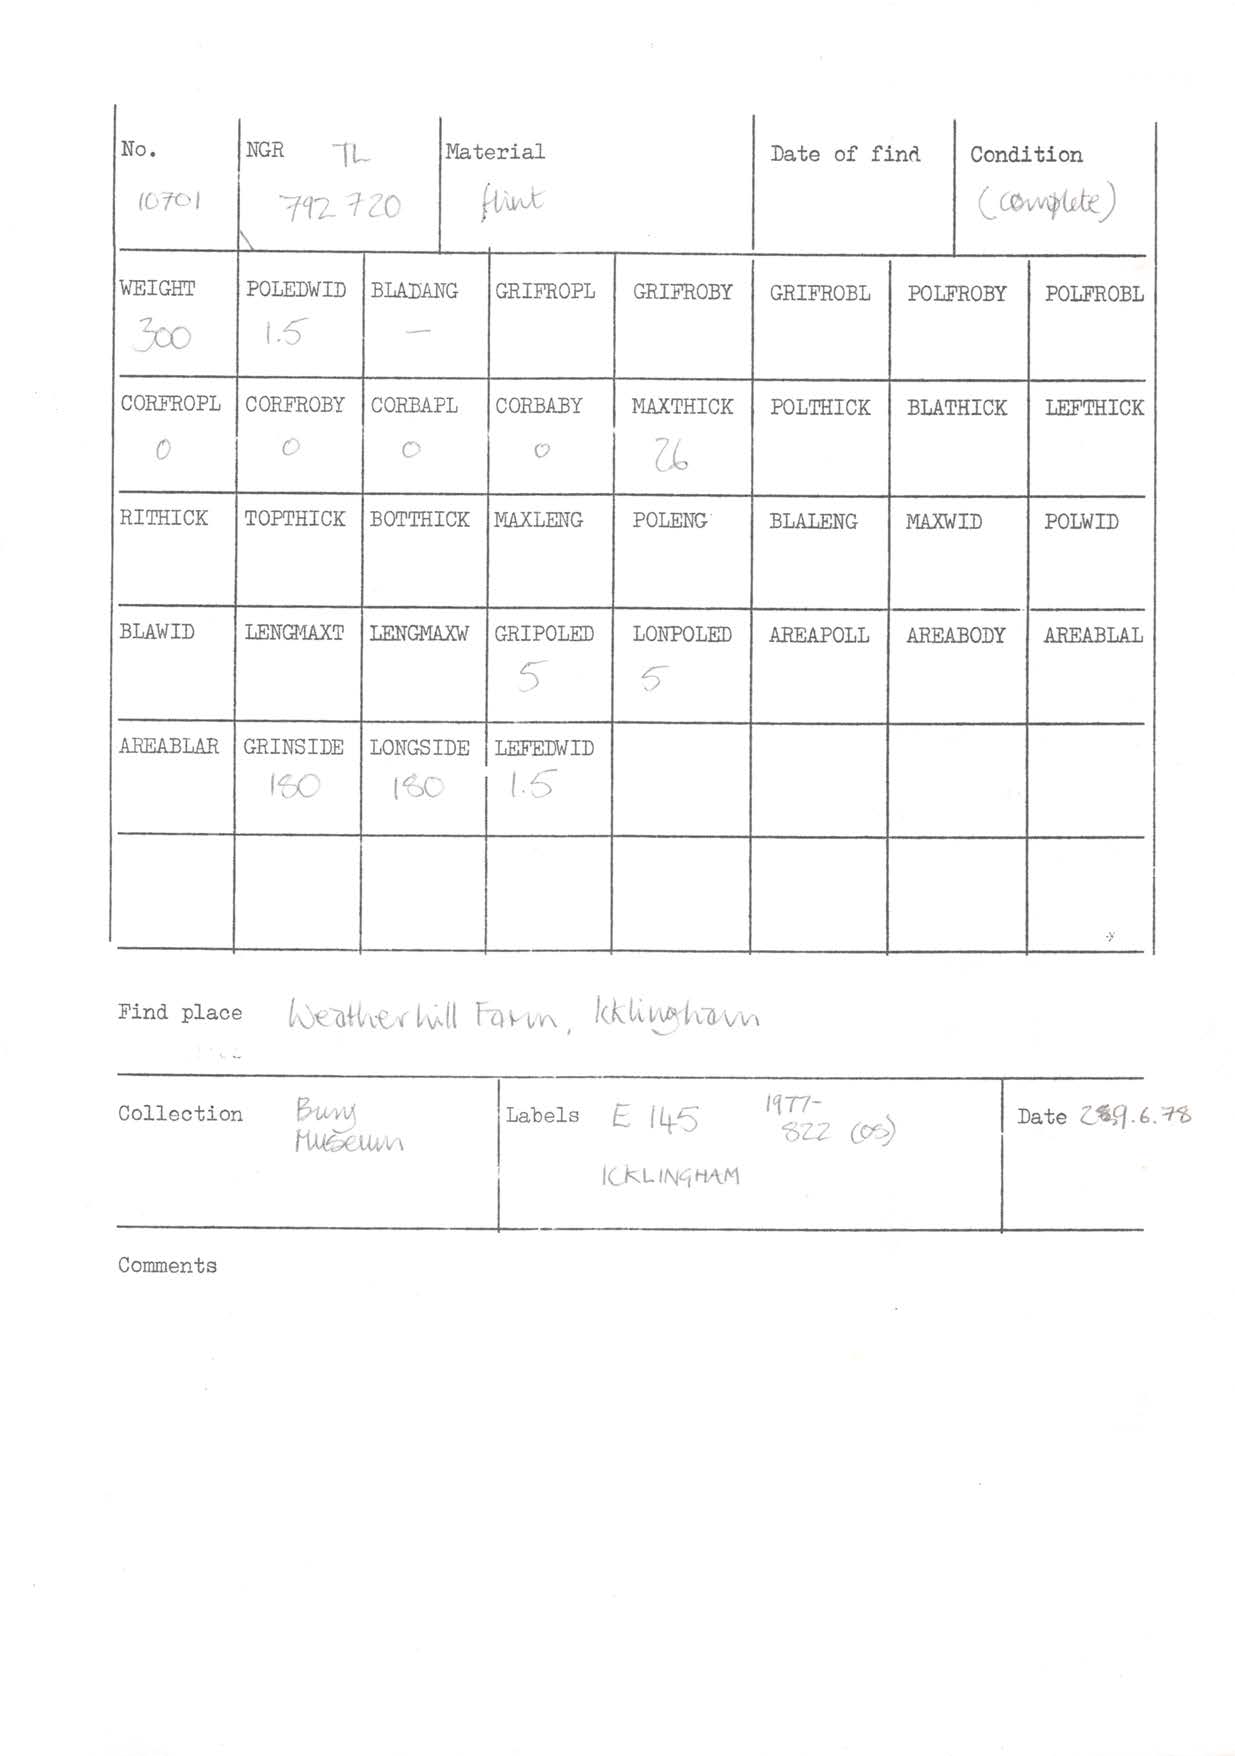 No. NGR TL Material Date of find Condition
10701 792 720 flint (complete)
WEIGHT POLEDWID BLADANG GRIFROPL GRIFROBY GRIFROBL POLFROBY POLFROBL
300 1.5 —
CORFROPL CORFROBY CORBAPL CORBABY MAXTHICK POLTHICK BLATHICK LEFTHICK
0 0 0 0 26
RITHICK TOPTHICK BOTTHICK MAXLENG POLENG BLALENG MAXWID POLWID
BLAWID LENGMAXT LENGMAXW GRIPOLED LONPOLED AREAPOLL AREABODY AREABLAL
5 5
AREABLAR GRINSIDE LONGSIDE LEFEDWID
180 180 1.5
Find place Weatherhill Farm, Icklingham
Collection Bury Museum
Labels E 145 1977-
822 (OS)
ICKLINGHAM
Date .6.78
Comments